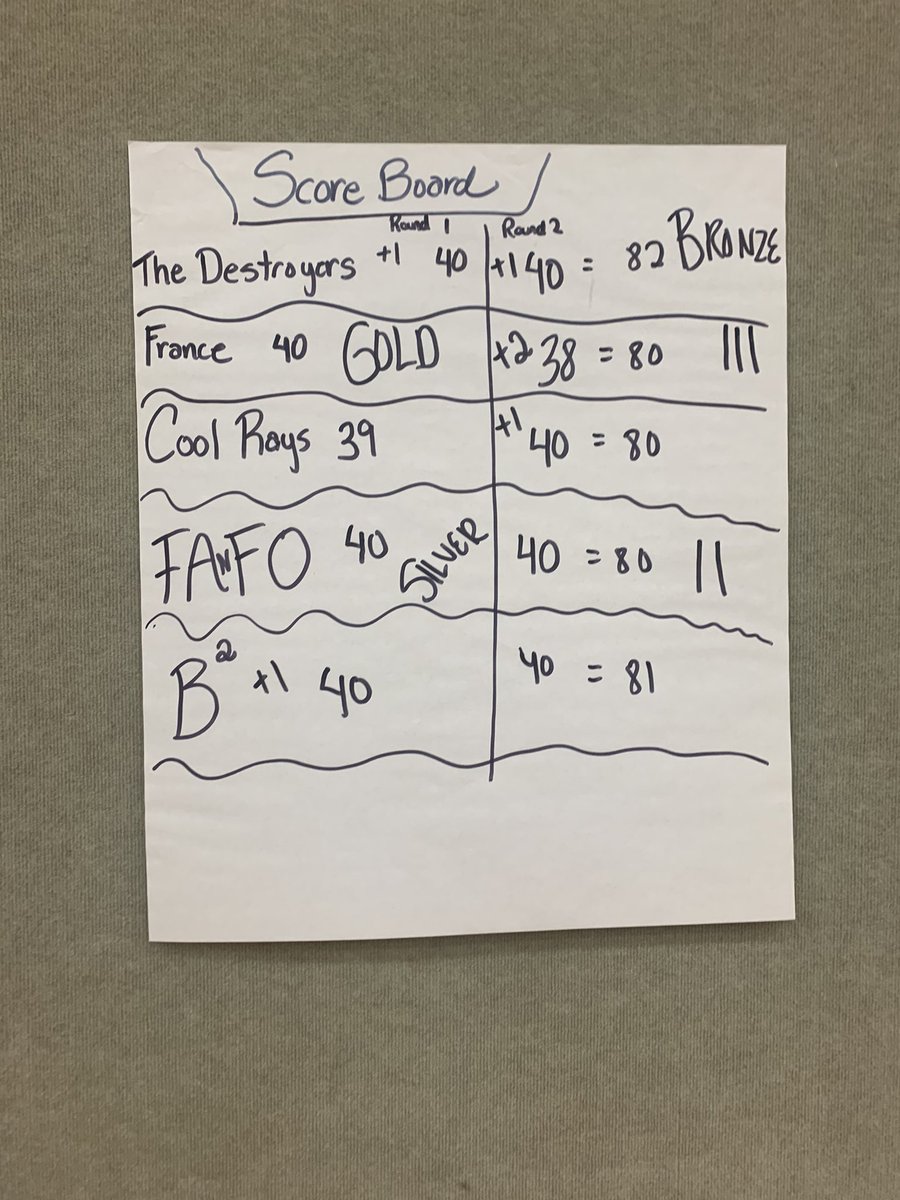 Score Board
Round 1 Round 2
The Destroyors +1 40 +1 40 = 82 BRONZE
France 40 GOLD +2 38 = 80 |||
Cool Rays 39 +1 40 = 80
FANFO 40 SILVER 40 = 80 ||
B² +1 40 40 = 81